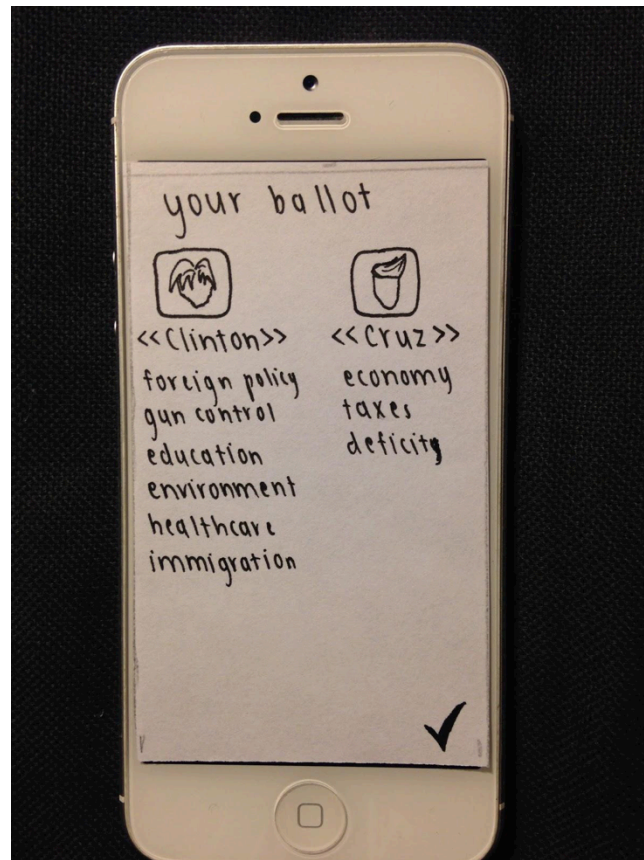 your ballot
<<Clinton>>
foreign policy
gun control
education
environment
healthcare
immigration
<<Cruz>>
economy
taxes
deficit